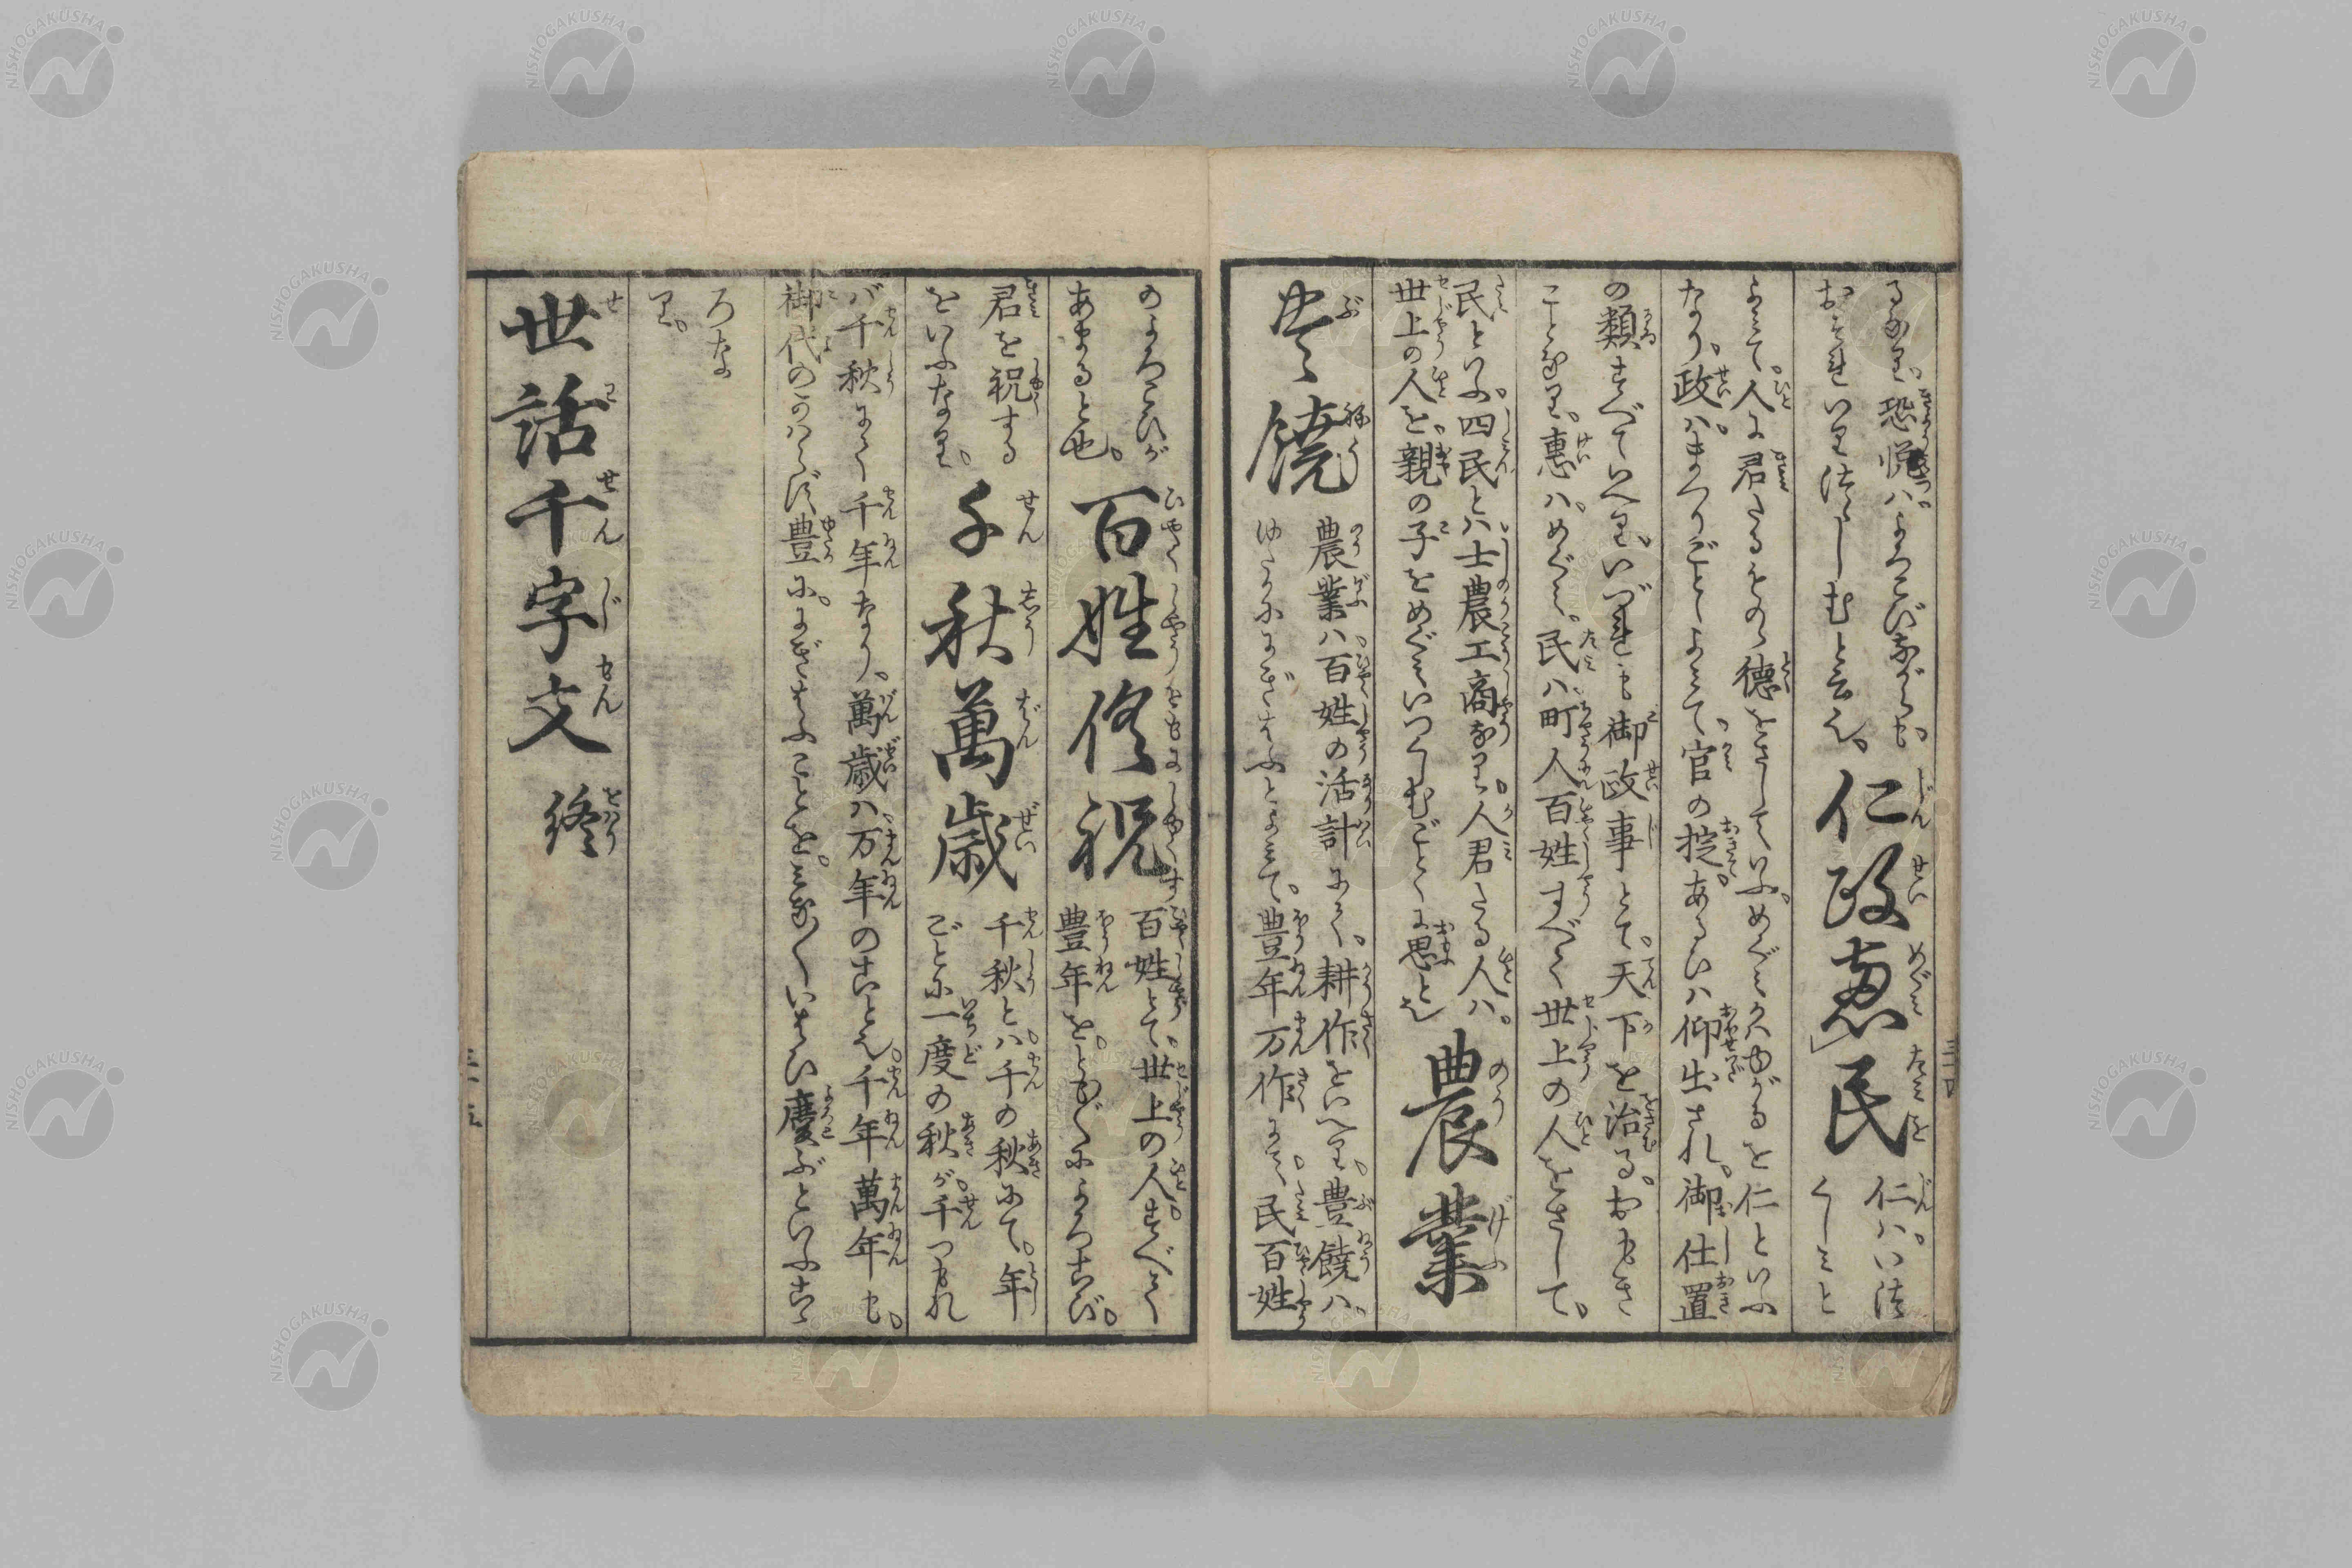 るなり。恐悦ハ。よろこびながらも。
おそれいりつゝしむと云也。
仁政恵民
仁ハ。いつ
くしミと
よミて。人に君たるものゝ徳をさしていふ。めぐミかハゆがるを仁といふ
なり。政ハ。まつりごとゝよミて。官の掟。あるひハ仰出され。御仕置
の類すべていへり。いづれも御政事とて。天下を治る。おもき
ことなり。惠ハ。めぐミ。民ハ町人百姓すべて世上の人をさして。
民といふ。四民とハ士農工商なり。人君たる人ハ。
世上の人を。親の子をめぐミいつくしむごとくに思と也
農業
豊饒
農業ハ。百姓の活計にて。耕作をいへり。豊饒ハ。
ゆたかににぎはふとよミて。豊年万作にて。民百姓
のよろこひが
あまると也。
百姓修祝
百姓とて。世上の人。すべて
豊年を。ともぐによろこび。
君を祝する
をいふなり。
千秋萬歳
千秋と。ハ千の秋にて。年
ごとに一度の秋が。千つもれ
バ千秋にて千年なり。萬歳ハ。万年のこと也。千年萬年も。
御代のかハらず豊に。にぎはふことを。ミな〳〵いはひ慶ぶといふこゝ
ろな
り。
世話千字文終